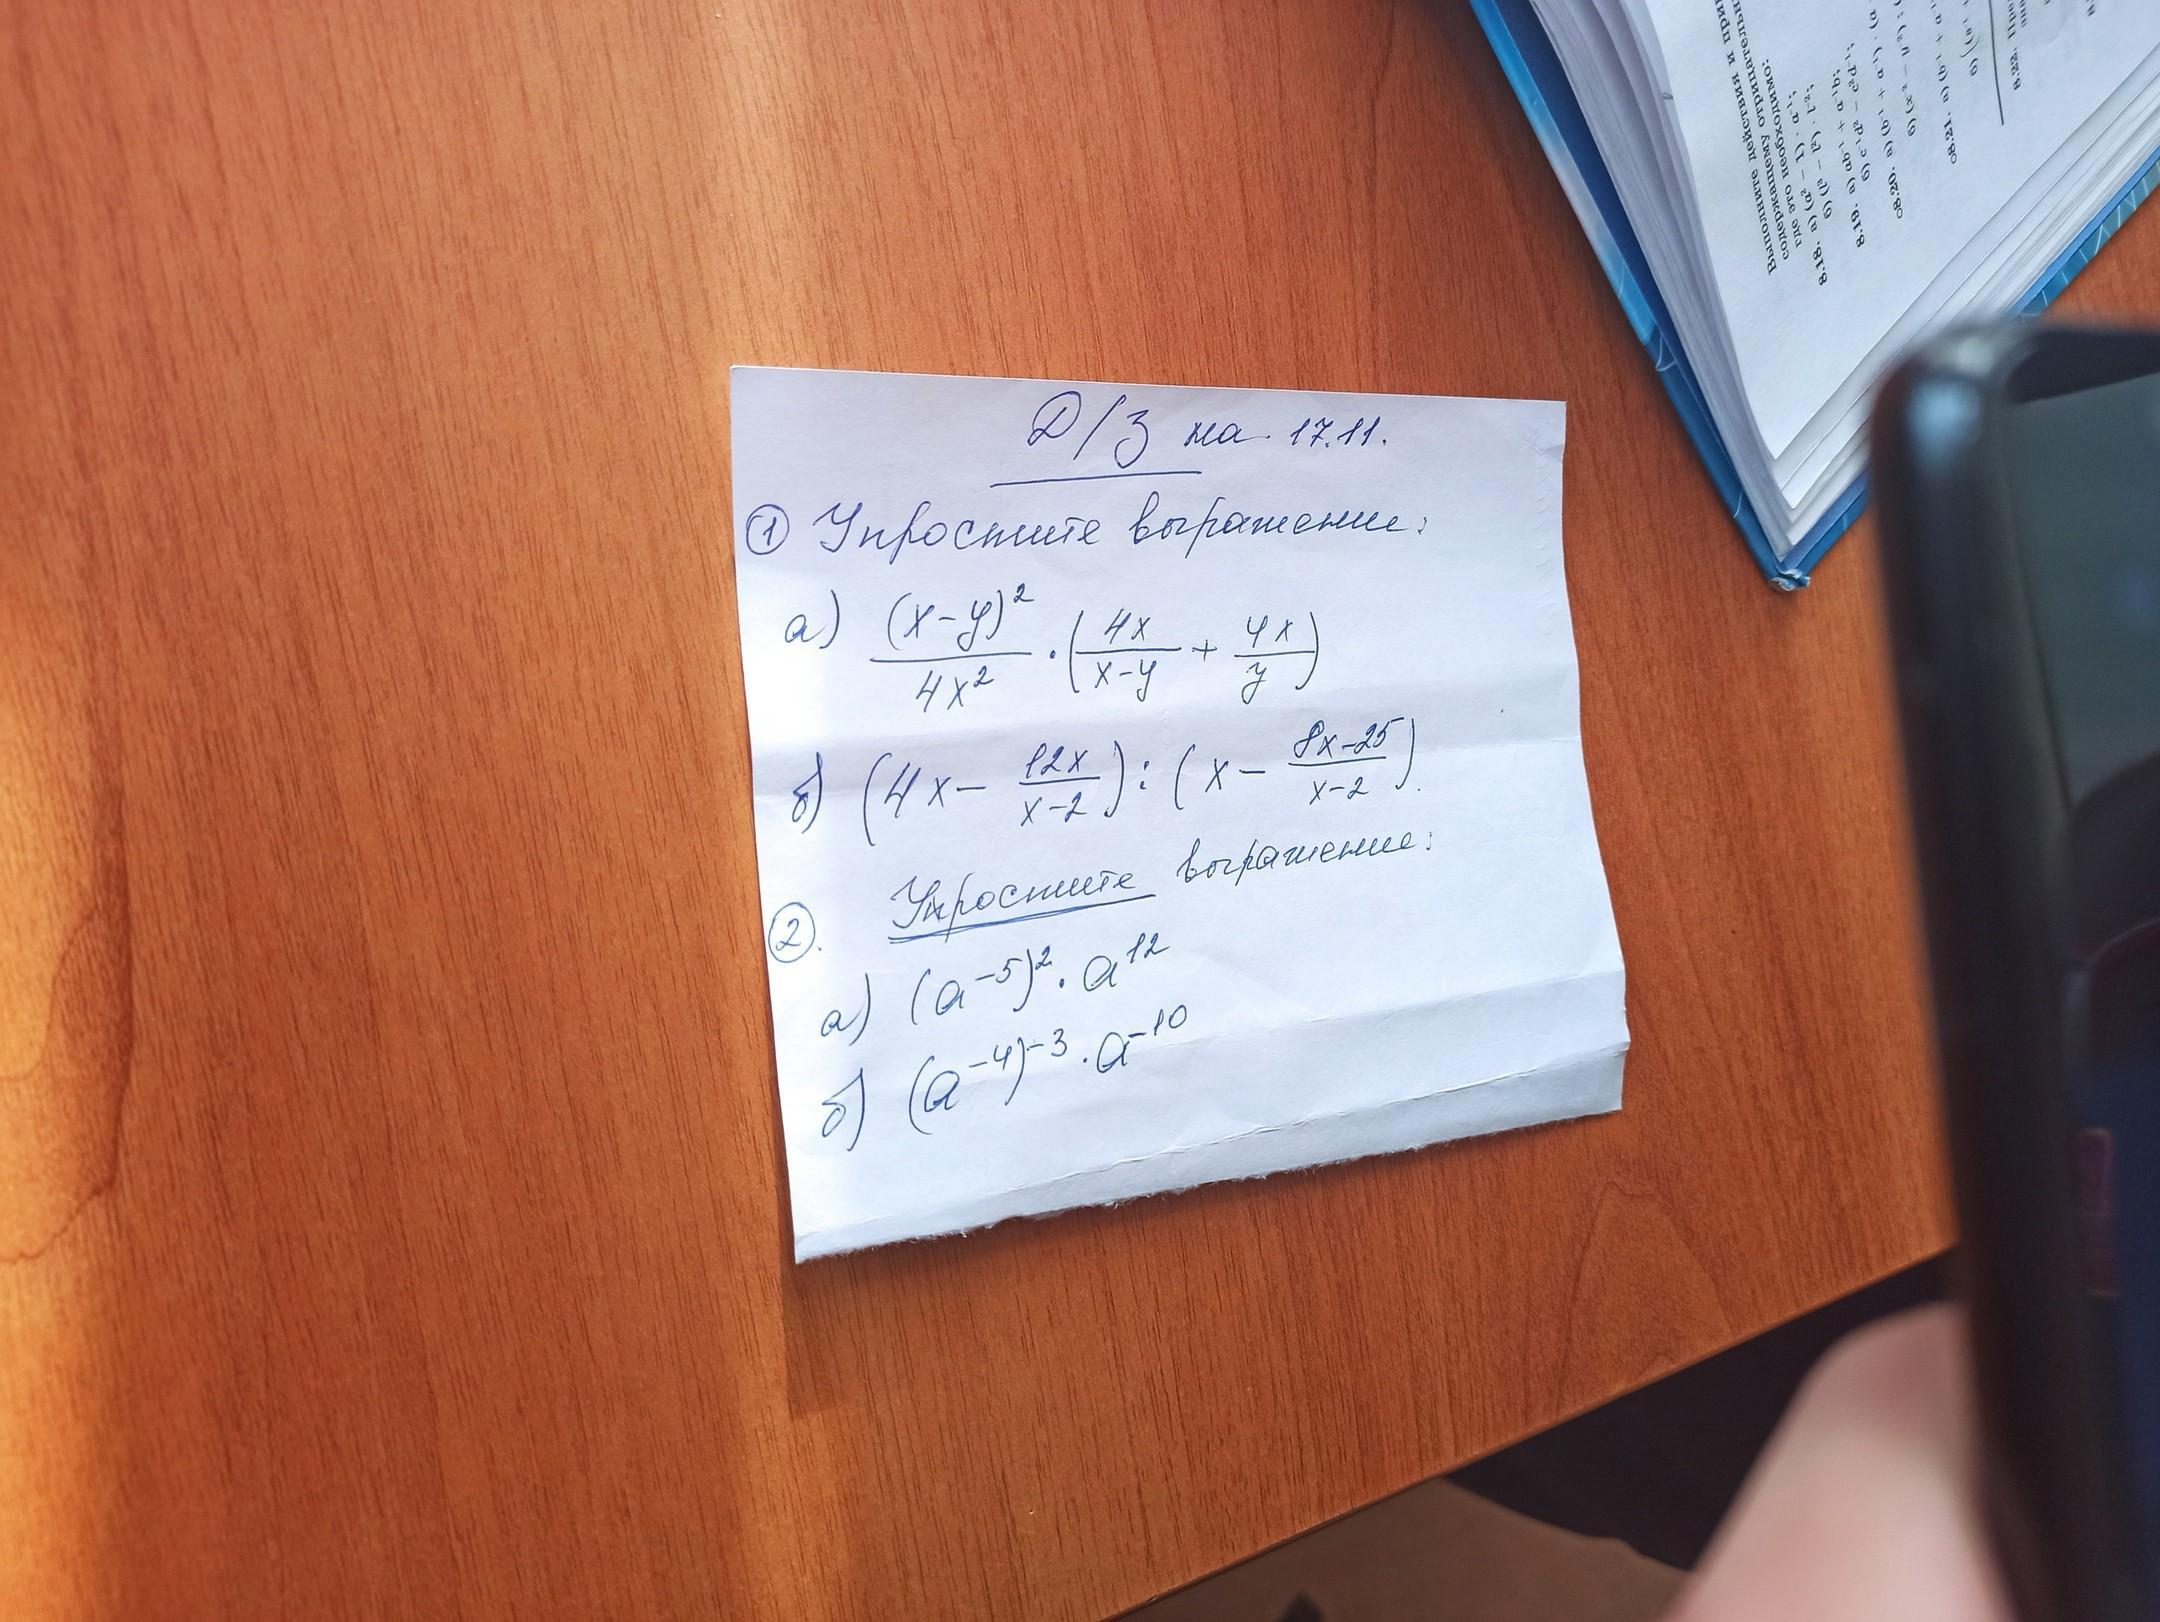 Д/З на 17.11.
① Упростите выражение:
а) (x-y)²/4x² · (4x/x-y + 4x/y)
б) (4x - 12x/x-2) : (x - 8x-25/x-2).
②. Упростите выражение:
а) (a⁻⁵)² · a¹²
б) (a⁻⁴)⁻³ · a⁻¹⁰
Выполните действия и
содержащему
где это необходимо:
8.18. а) (a² - 1) · a⁻¹;
8.19. а) ab⁻¹ + a⁻¹b;
8.20. а) (b⁻¹ + a⁻¹) ·
8.21. а) (b⁻¹ +
8.22.